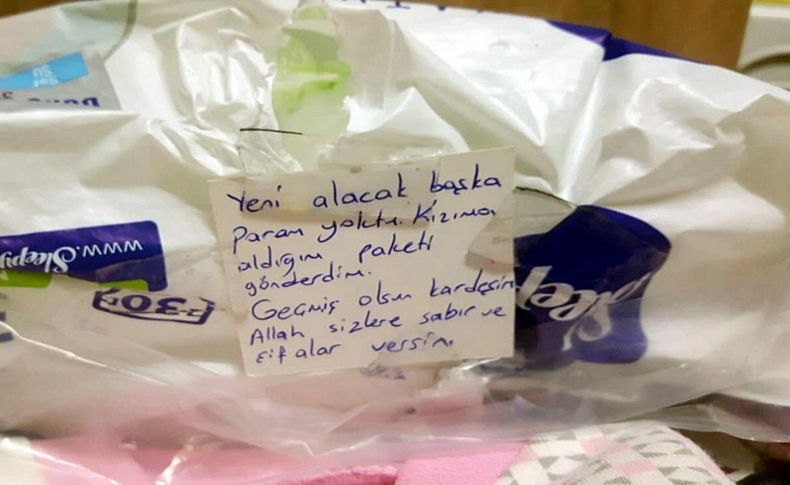 Yeni alacak başka
param yoktu. Kızıma
aldığım paketi
gönderdim.
Geçmiş olsun kardeşim
Allah sizlere sabır ve
şifalar versin.
www.Sleepy
Sleepy